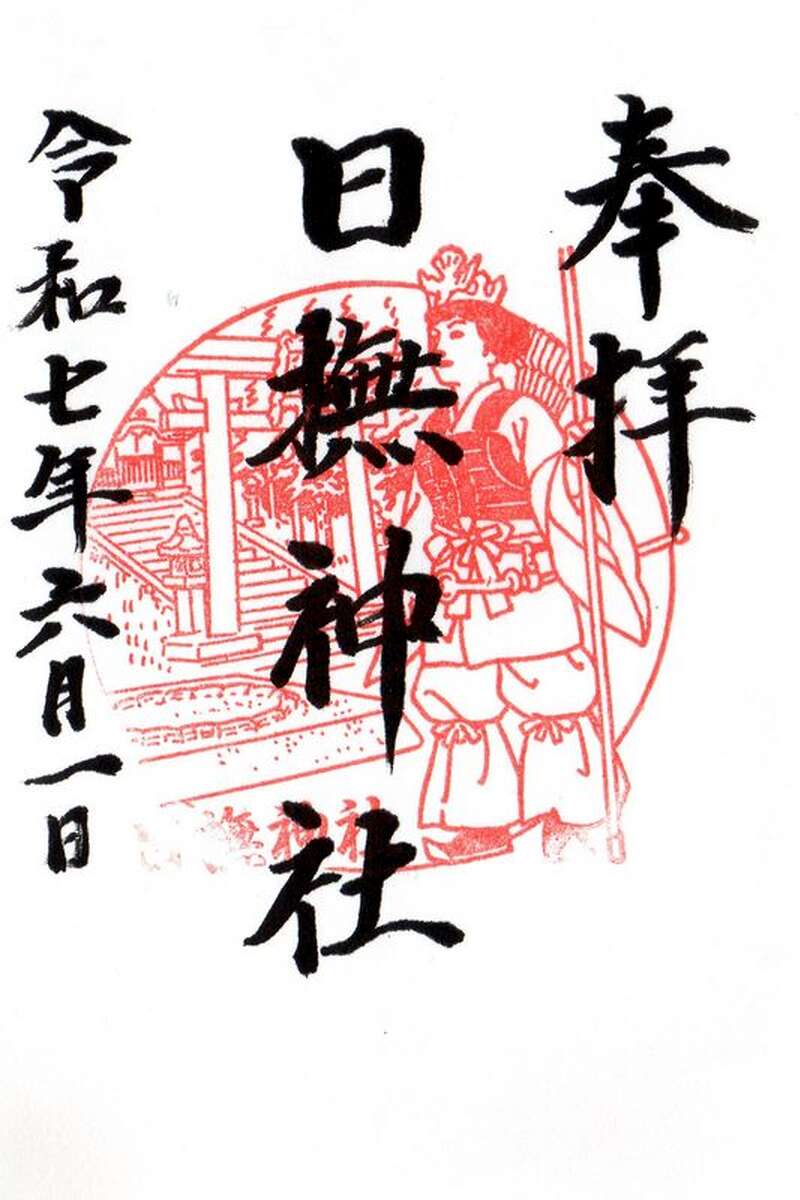 奉拝
日撫神社
令和七年六月一日
撫神社